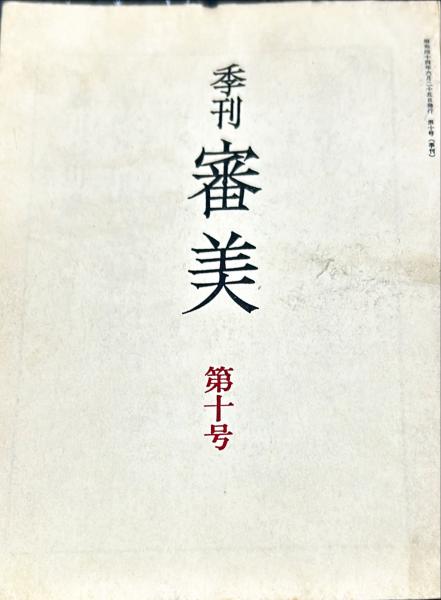 昭和四十四年六月二十五日発行 第十号(季刊)
季刊
審美
第十号